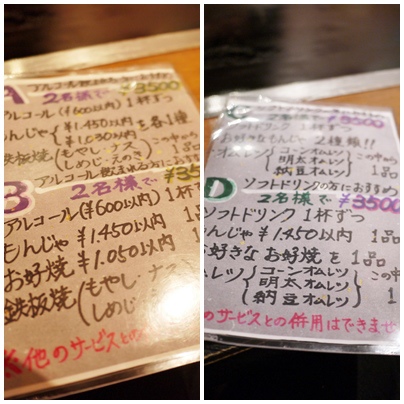 A
2名様で ¥3500
アルコール(¥600以内) 1杯ずつ
もんじゃ ¥1.450以内
¥1.030以内 を各1種
鉄板焼(もやし・ナス
しめじ・えのき) この中から
1品
B
アルコール飲まれる方に
2名様で ¥35
アルコール(¥600以内) 1杯
もんじゃ ¥1.450以内 1品
お好焼 ¥1.050以内
鉄板焼(もやし・ナス
しめじ
他のサービスとの
C
2名様で ¥3500
ソフトドリンク 1杯ずつ
お好きなもんじゃ 2種類!!
オムレツ コーンオムレツ
明太オムレツ この中から
納豆オムレツ 1品
D
ソフトドリンクの方におすすめ
2名様で ¥3500
ソフトドリンク 1杯ずつ
もんじゃ ¥1.450以内 1品
好きなお好焼を 1品
ムレツ コーンオムレツ
明太オムレツ この中
納豆オムレツ 1
のサービスとの併用はできませ